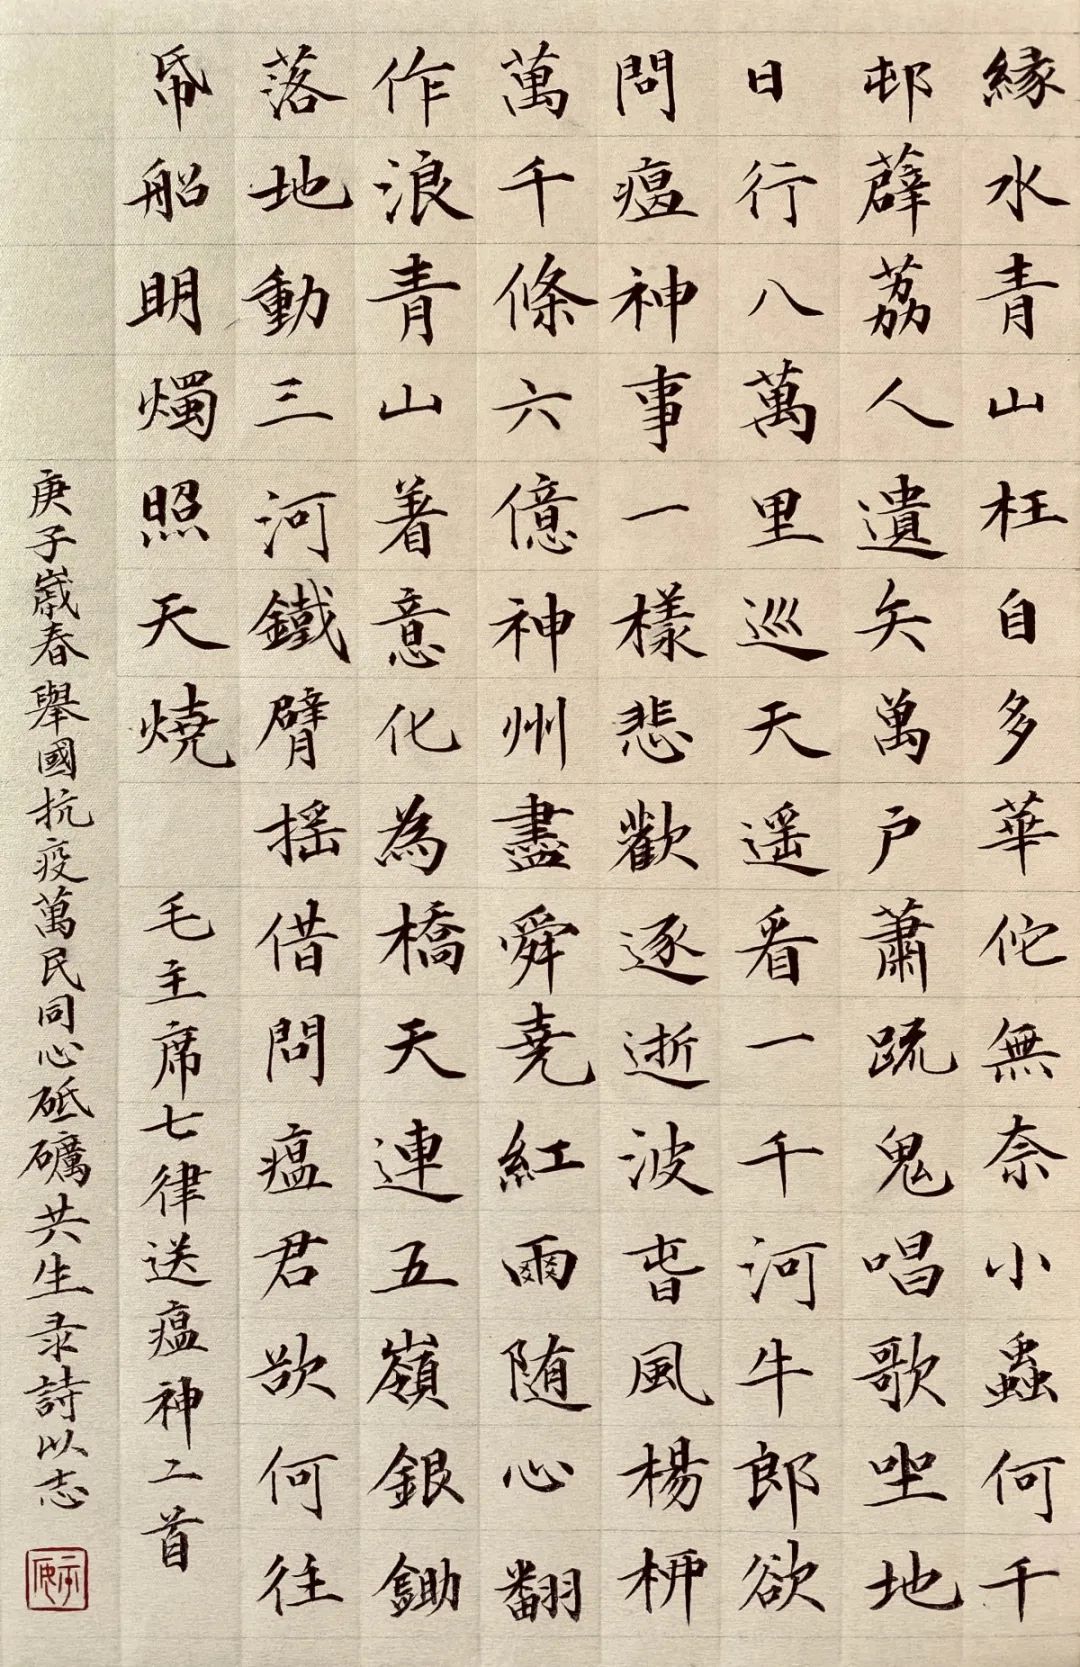 緑水青山枉自多華佗無奈小蟲何千
邨薜荔人遺矢萬户蕭疏鬼唱歌坐地
日行八萬里巡天遥看一千河牛郎欲
問瘟神事一樣悲歡逐逝波旾風楊柳
萬千條六億神州盡舜堯紅雨随心翻
作浪青山着意化為橋天連五嶺銀鋤
落地動三河鐵臂摇借問瘟君欲何往
帋船明燭照天燒 毛主席七律送瘟神二首
庚子歲春舉國抗疫萬民同心砥礪共生录詩以志